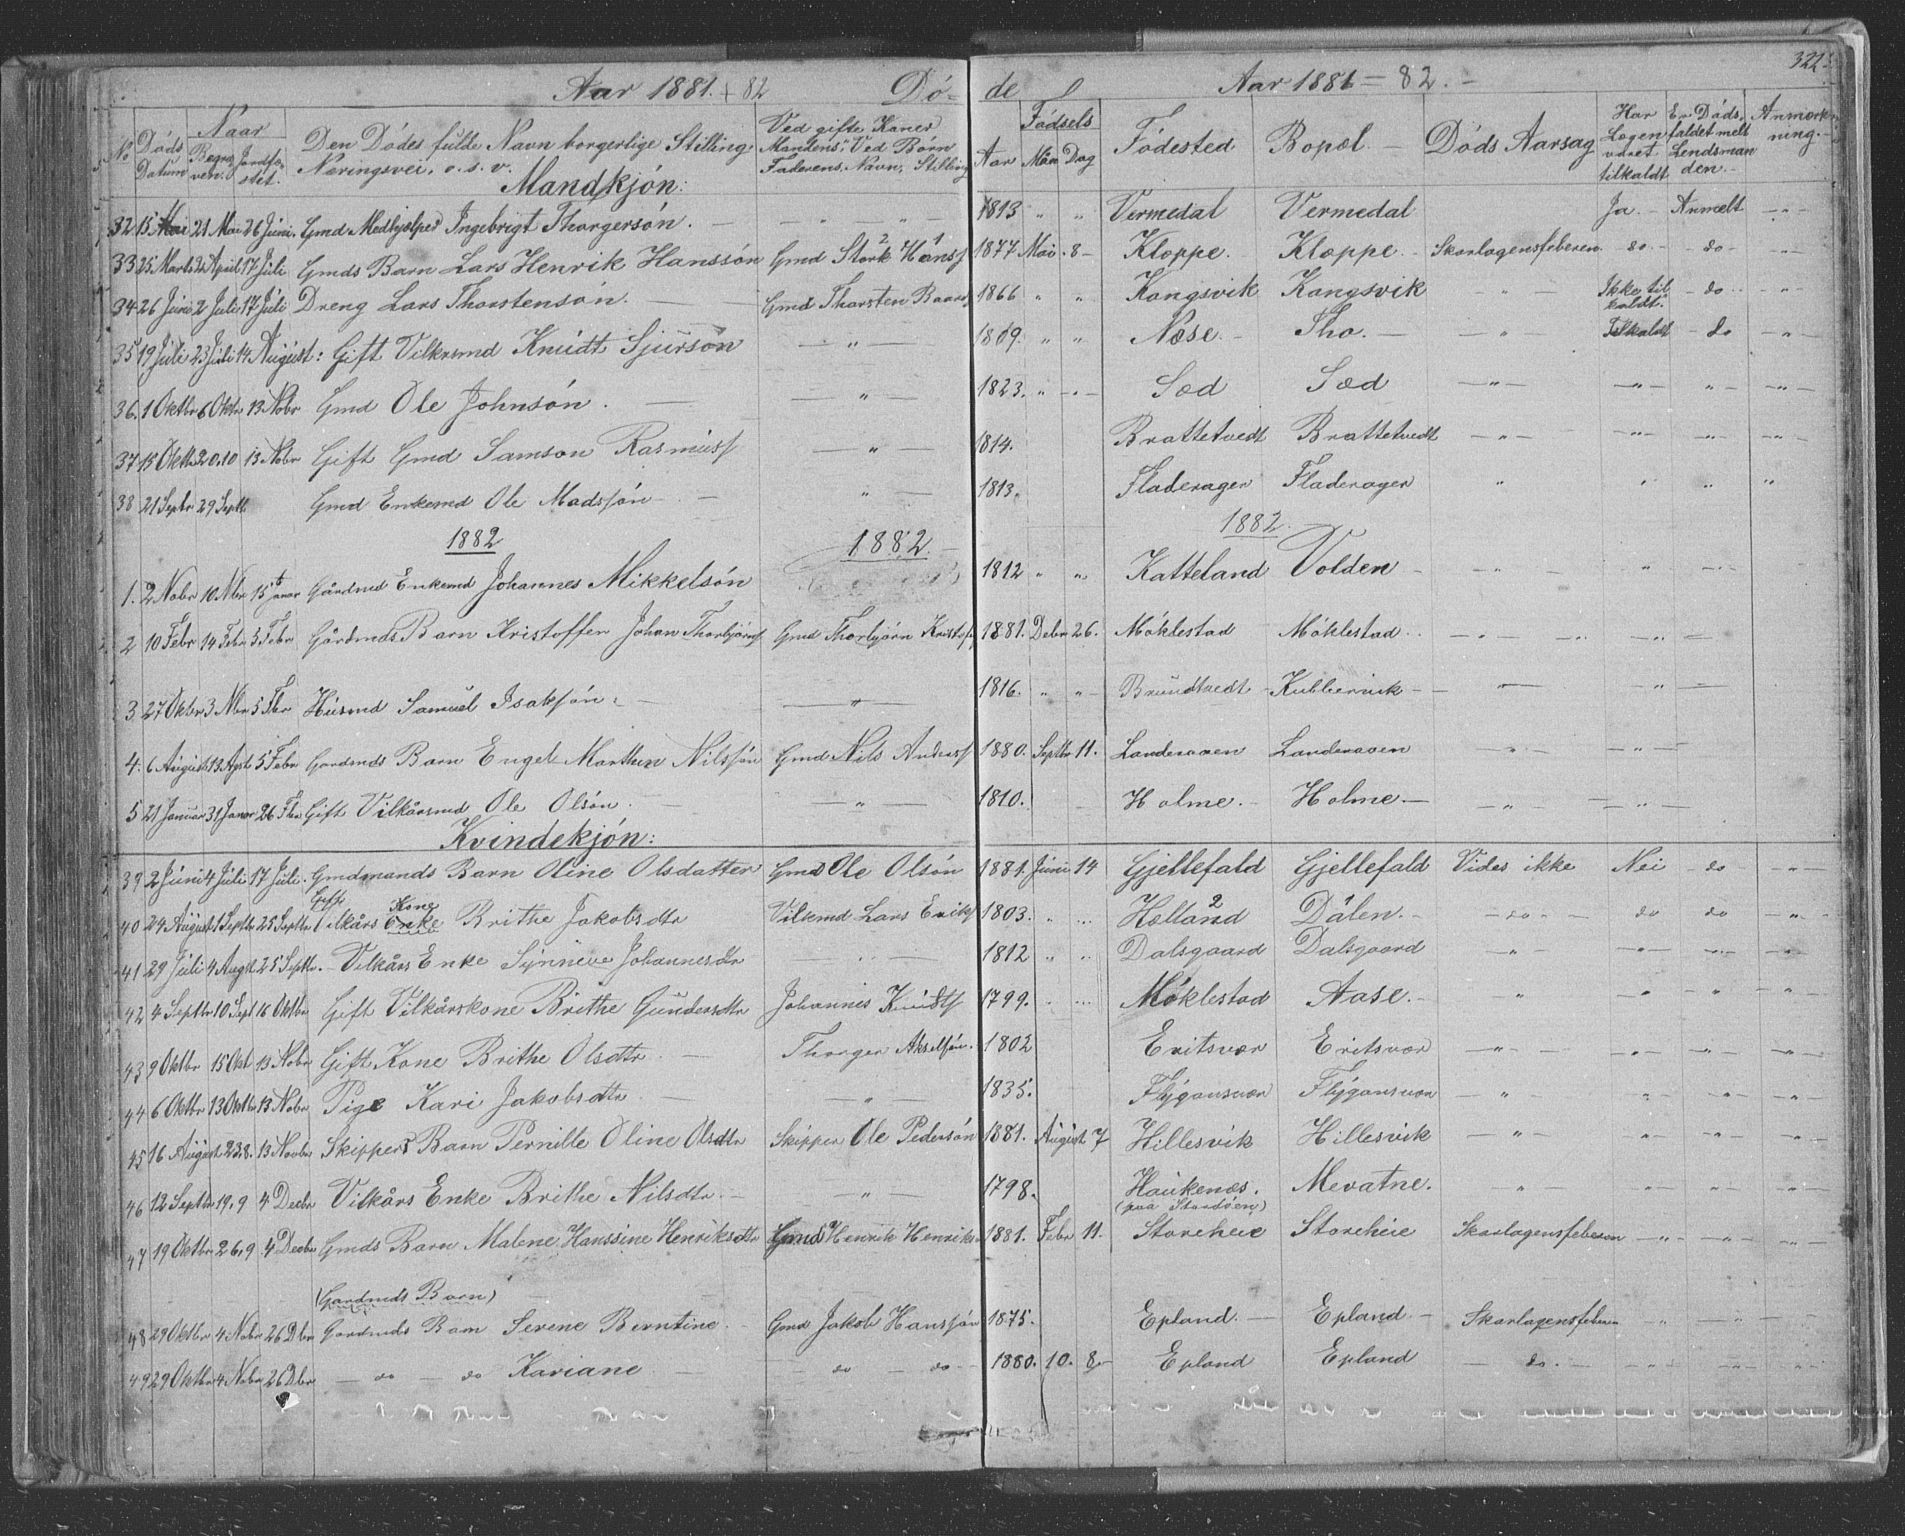 322
Aar 1881 + 82 Dö- de Aar 1881 - 82. -
No Döds Datum Naar Begra ven. Jordfæ stet. Den Dödes fulde Navn borgerlige Stilling Næringsvei, o.s.v. Ved gifte Koner Mandens, Ved Börn Faderens Navn, Stilling Födsels Aar Maan Dag Födested Bopæl - Döds Aarsag Har Lægen været tilkaldt Er Döds faldet melt Lendsman den. - Anmærk ning. -
Mandkjön:
32 15 Mai 21 Mai 26 Juni. Gmd Medhjælper Ingebrigt Thorgersön. - - " - " - 1813 " " Vermedal Vermedal Ja. - Anmelt - " -
33 25 Marts 2 April 17 Juli Gmds Barn Lars Henrik Hanssön Gmd Stork 2 Hans 1 1877 Mai. 8 - Kloppe. Kloppe. - Skarlagensfeberen do - - do - - " -
34 26 Juni 2 Juli 17 Juli Dreng Lars Thorstensön. - Gmd Thorsten Baards 1866 " " Kongsvik Kongsvik - " - Ikke til kaldt. - do - - " -
35 19 Juli 23 Juli 14 August: Gift Vilkrsmd Knudt Sjursön - " - 1809. " " Næse. - Tho. - - " - Tilkaldt - do - " -
36. 1 Oktbr 6 Oktbr 13 Nobr Gmd Ole Johnsön. - - " - 1823. " - " - Sæd Sæd - " - - " - " - - " -
37 15 Oktb 20.10 13 Nobr Gift Gmd Samson Rasmuss - " - 1814. Brattetvedt Brattetvedt - " - - " - - " - - " -
38 21 Septbr 29 Septb Gmd Enkemd Ole Madssön - " - 1813. Fladerager Fladerager " " " "
1882 1882. - 1882. -
1. 2 Nobr 10 Nbr 15 Janar Gårdmd Enkemd Johannes Mikkelsön 1812 " " Katteland Volden - - " - " - " -
2 10 Febr 14 Febr 5 Febr Gårdmds Barn Kristoffer Johan Thorbjörns Gmd Thorbjörn Kristofs 1881. Debr 26. Möklestad Möklestad. - " - " - - " -
3 27 Oktbr 3 Nbr 5 Fbr Husmd Samuel Isaksön. - - " - 1816. " " - Brundtvedt - Kubbervik - - " - - " -
4. 6 August 13 Agst 5 Febr Gardmds Barn Engel Marthin Nilssön Gmd Nils Anderss 1880. Septbr 11. Landeraaen Landeraaen - " - - " -
5 21 Januar 31 Janar 26 Fbr Gift Vilkårsmd Ole Olsön. - - " - 1810. Holme. - Holme. - - " - - " -
Kvindekjön:
39 2 Juni 4 Juli 17 Juli. Gmdmands Barn Oline Olsdatter Gmd Ole Olsön 1881. Juni 14 Gjellefald Gjellefald Vides ikke Nei - do - " -
Gift Kone
40 24 August 1 Septbr 25 Septbr Vilkårs Enke Brithe Jakobsdtr Vilkmd Lars Eriks 1803. " " Hælland 2 Dålen. - - do - - do do - " -
41 29 Juli 4 Augst 25 Septbr. - Vilkårs Enke Synneve Johannesdtr - " - 1812 " " Dalsgaard Dalsgaard - " - - " - - " - - " -
42 4 Septbr 10 Sept 16 Oktbr Gift Vilkårskone Brithe Gundersdtr Johannis Knudts 1799. " " Möklestad Aase. - " " " " -
43 9 Oktbr 15 Okt 13 Nobr Gift Kone Brithe Olsdtr. - Thorger Akselsön. 1802 Eritsvær Eritsvær - " - - " - - " - - " -
44 6 Oktbr 13 Oktbr 13 Nobr Pige Kari Jakobsdtr. - - " - 1835. Flygansvær Flygansvær " " - " - - " -
45 16 August 23.8. 13 Novbr Skippers Barn Pernille Oline Olsdtr Skipper Ole Pedersön 1881. August 7 Hillesvik Hillesvik - " - - " - " - " -
46 12 Septbr 19.9 4 Decbr Vilkårs Enke Brithe Nilsdtr. - - " - 1798. Haukenæs. Mevatne. - " - - " - - " - - " -
(paa Stordöen)
47 19 Oktbr 26.9 4 Decbr Gmds Barn Malene Hanssine Henriksdtr Gmd Henrik Henriks 1881. Febr 11. Storeheie Storeheie Skarlagensfeberen - " - - " - - " -
(Gardmds Barn)
48 29 Oktbr 4 Nobr 26 Dbr Gardmds Barn Serene Berntine. - Gmd Jakob Hanssön 1875. Epland. - Epland. - Skarlagensfeberen " - " - - " -
49 29 Oktbr 4 Nobr 26 Dbr - do - do Kariane - do - do - 1880. 10. 8. - Epland Epland - do. - - " - - " - - " -